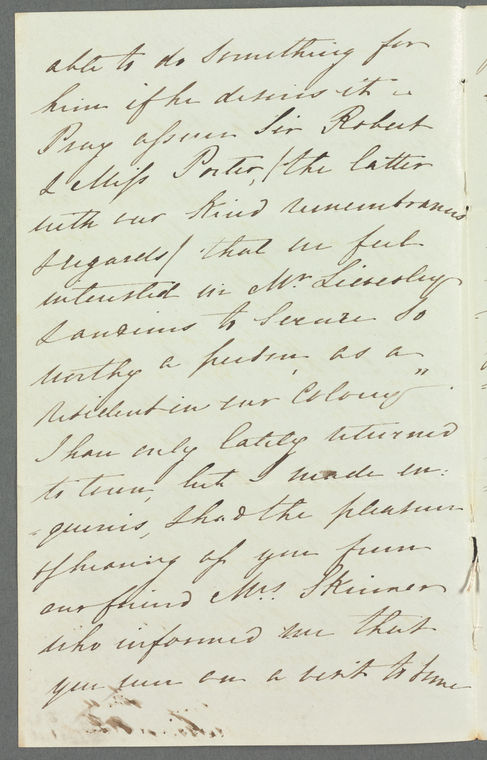 able to do something for
him if he desires it –
Pray assure Sir Robert
& Miss Porter, (the latter
with our kind remembrances
& regards) that we feel
interested in Mr Lievesley
& anxious to secure so
worthy a person as a
resident in our Colony"
I have only lately returned
to town, but I made en:
-quiries, & had the pleasure
of hearing of you from
our friend Mrs. Skinner
who informed me that
you were on a visit to some